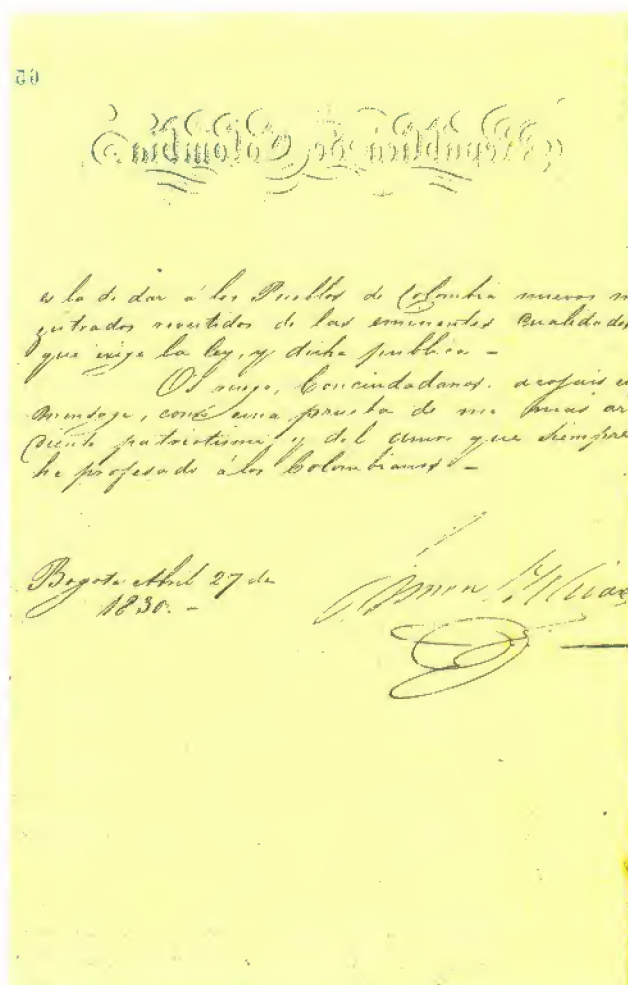 59
Republica de Colombia
es la de dar á los Pueblos de Colombia nuevos m
gistrados revestidos de las eminentes cualidades
que exige la ley, y dicha publica -
Os ruego, Conciudadanos. acojais
mensage, como una prueba de mi mas ar
diente patriotismo, y del amor que siempre
he profesado á los Colombianos -
Bogota Abril 27 de
1830. -
Simon Bolivar